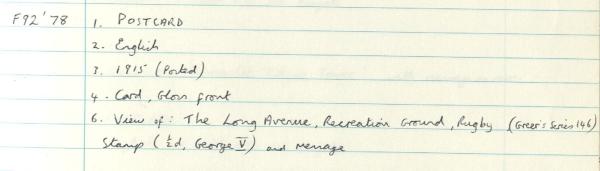 F92'78 1. POSTCARD
2. English
3. 1915 (Posted)
4. Card, Gloss front
6. View of: The Long Avenue, Recreation Ground, Rugby (Greer's Series 146)
Stamp (½d, George V) and message